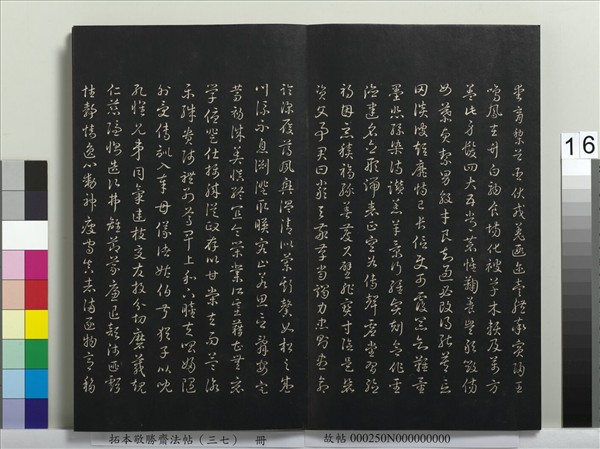 愛育黎首臣伏戎羌遐邇壹體率賓歸王
鳴鳳在竹白駒食場化被草木賴及萬方
蓋此身髮四大五常恭惟鞠養豈敢毀傷
女慕貞潔男效才良知過必改得能莫忘
罔談彼短靡恃己長信使可覆器欲難量
墨悲絲染詩讚羔羊景行維賢剋念作聖
德建名立形端表正空谷傳聲虛堂習聽
禍因惡積福緣善慶尺璧非寶寸陰是競
資父事君曰嚴與敬孝當竭力忠則盡命
臨深履薄夙興溫凊似蘭斯馨如松之盛
川流不息淵澄取映容止若思言辭安定
篤初誠美慎終宜令榮業所基籍甚無竟
學優登仕攝職從政存以甘棠去而益詠
樂殊貴賤禮別尊卑上和下睦夫唱婦隨
外受傅訓入奉母儀諸姑伯叔猶子比兒
孔懷兄弟同氣連枝交友投分切磨箴規
仁慈隱惻造次弗離節義廉退顛沛匪虧
性靜情逸心動神疲守真志滿逐物意移
拓本敬勝齋法帖(三七) 冊
故帖 000250N000000000
16